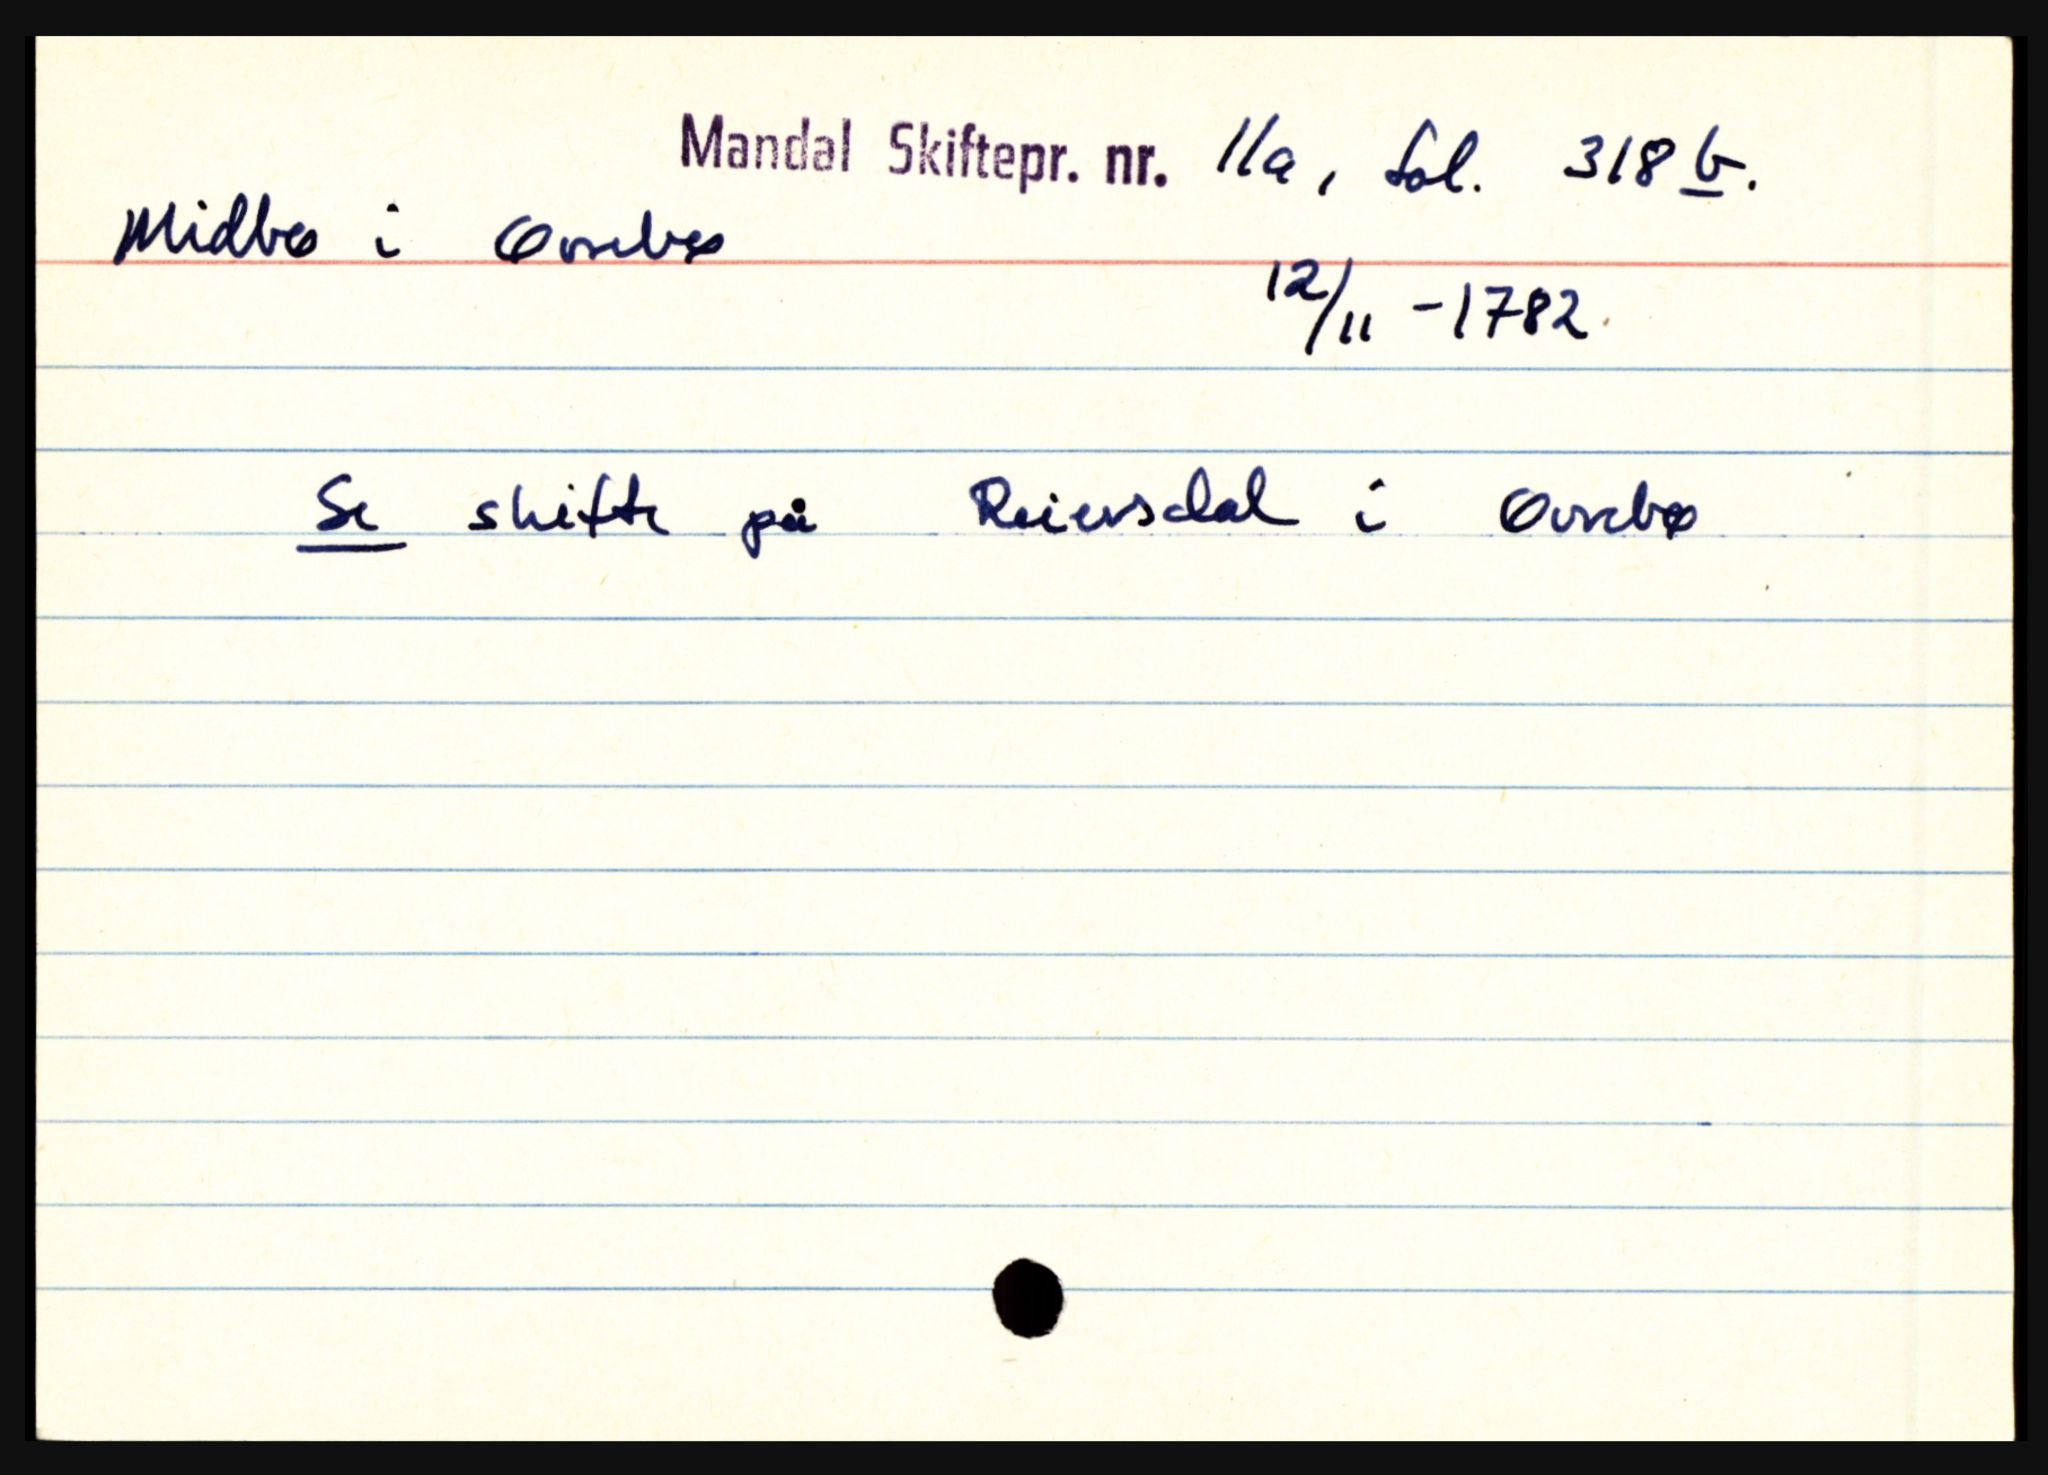 Mandal Skiftepr. nr. 11a, fol. 318 b.
Midbø i Øvrebø
12/11 - 1782.
Se skifte på Reiersdal i Øvrebø